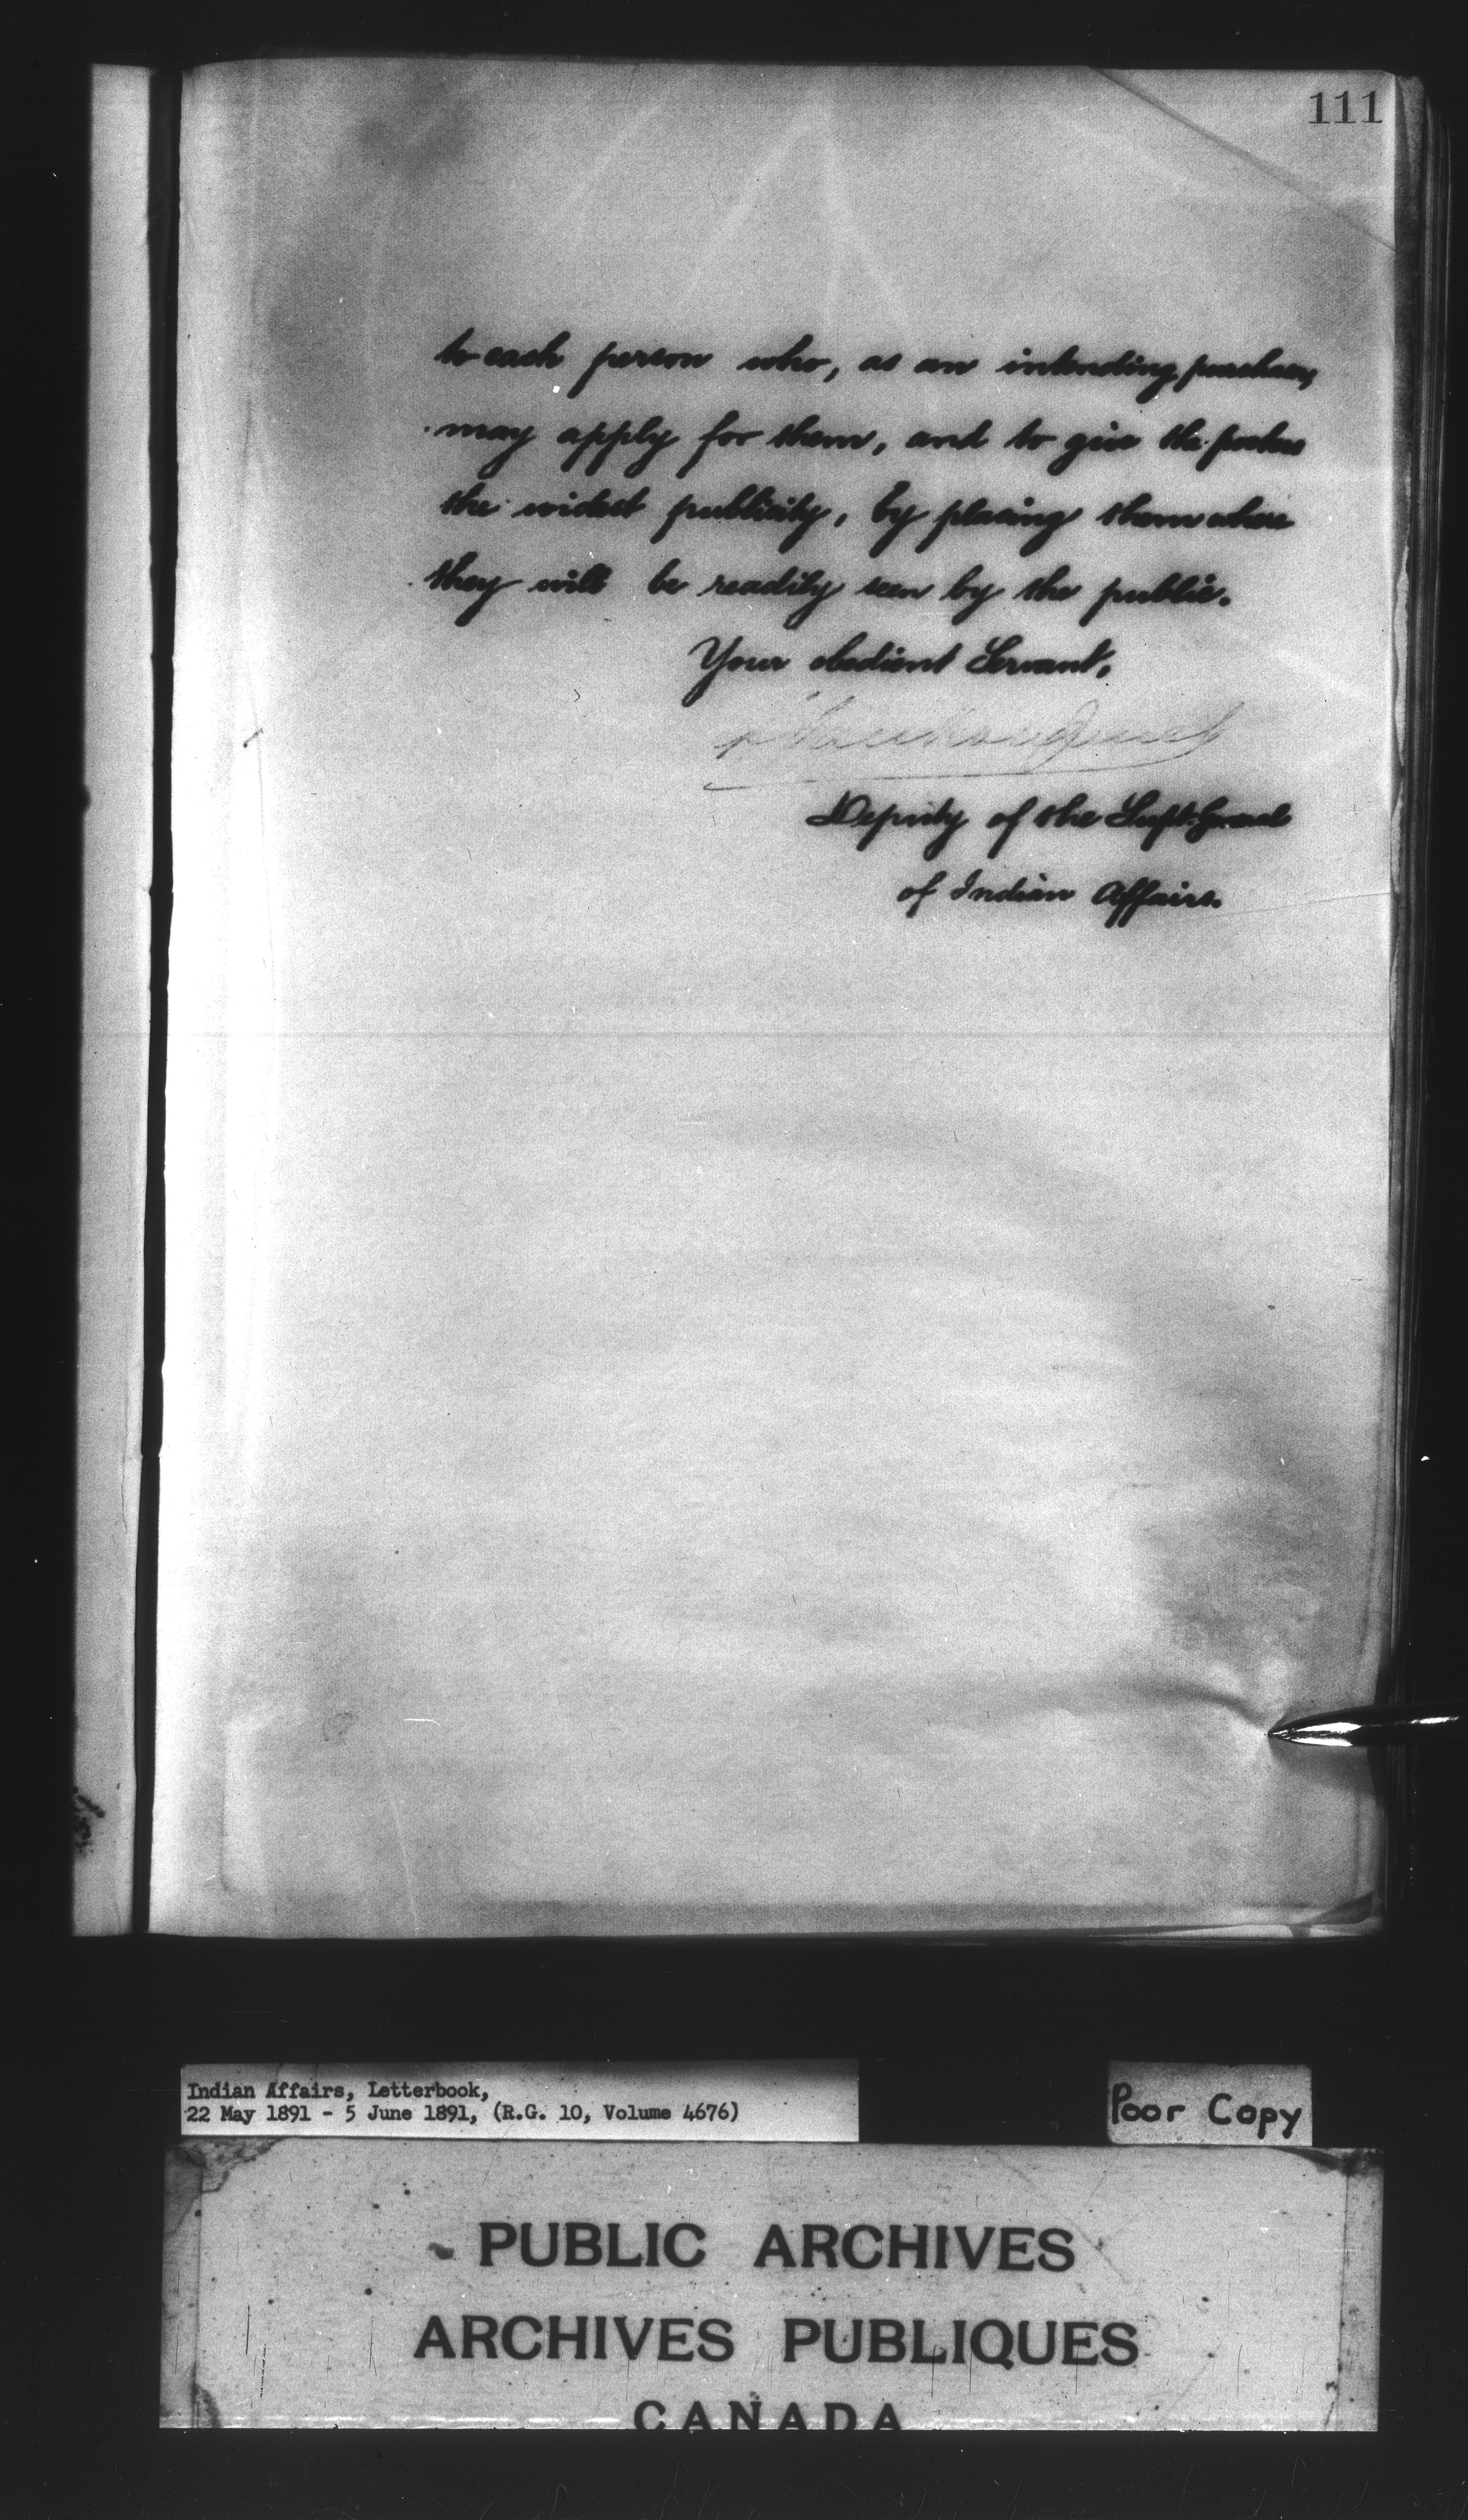 111
to each person who, as an intending purchaser,
may apply for them, and to give the posters
the widest publicity, by placing them where
they will be readily seen by the public.
Your obedient Servant,
Deputy of the Supt. General
of Indian Affairs.
Indian Affairs, Letterbook,
22 May 1891 - 5 June 1891, (R.G. 10, Volume 4676)
Poor Copy
PUBLIC ARCHIVES
ARCHIVES PUBLIQUES
CANADA